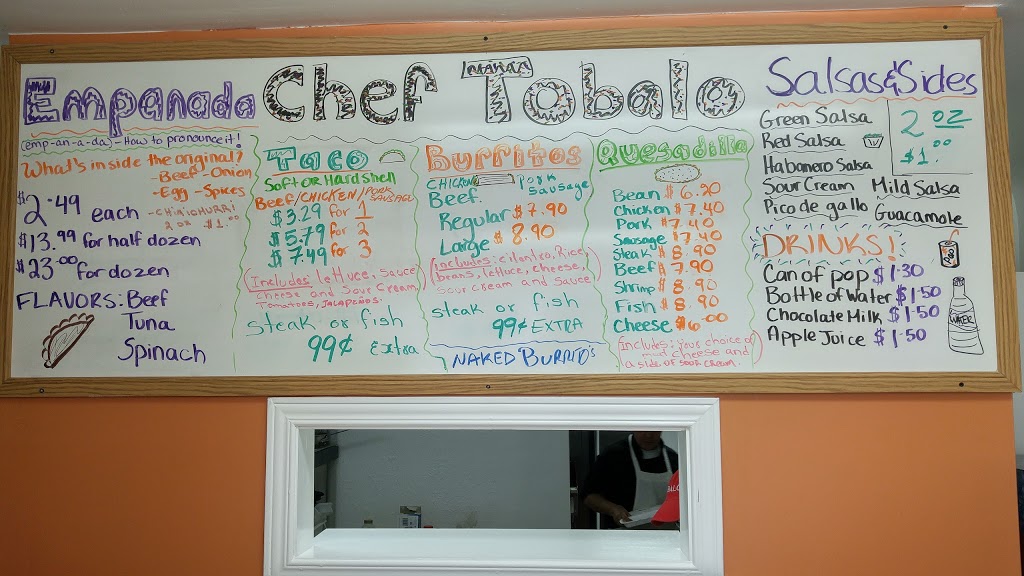 Empanada
(emp-an-a-da) - How to pronounce it!
What's inside the original?
- Beef - Onion
- Egg - Spices
- CHIMICHURRI
2 oz $1.00
$2.49 each
$13.99 for half dozen
$23.00 for dozen
FLAVORS: Beef
Tuna
Spinach
Chef Tobalo
Taco
Soft or Hard shell
Beef/CHICKEN/PORK SAUSAGE
$3.29 for 1
$5.79 for 2
$7.49 for 3
(Includes lettuce, Sauce
cheese and Sour Cream,
Tomatoes, Jalapeños.
steak or fish
99¢ Extra
Burritos
CHICKEN
Beef.
Pork
Sausage
Regular $7.90
Large $8.90
(includes: cilantro, Rice,
beans, lettuce, cheese,
sour cream and sauce)
steak or fish
99¢ EXTRA
NAKED BURRITO'S
Quesadilla
Bean $6.20
Chicken $7.40
Pork $7.40
Sausage $7.40
Steak $8.90
Beef $7.90
Shrimp $8.90
Fish $8.90
Cheese $6.00
(includes: your choice of
cheese and
a side of sour cream.)
Salsas & Sides
Green Salsa
Red Salsa
Habanero Salsa
Sour Cream Mild Salsa
Pico de gallo Guacamole
2 oz
$1.00
DRINKS!
Can of pop $1.30
Bottle of Water $1.50
Chocolate Milk $1.50
Apple Juice $1.50
WATER